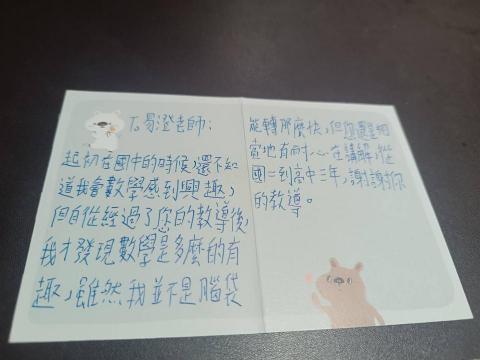 To 易澄老師：
起初在國中的時候，還不知
道我會數學感到興趣，
但自從經過了您的教導後，
我才發現數學是多麼的有
趣，雖然我並不是腦袋
能轉那麼快，但您還是細
心地有耐心在講解，從
國二到高中三年，謝謝你
的教導。